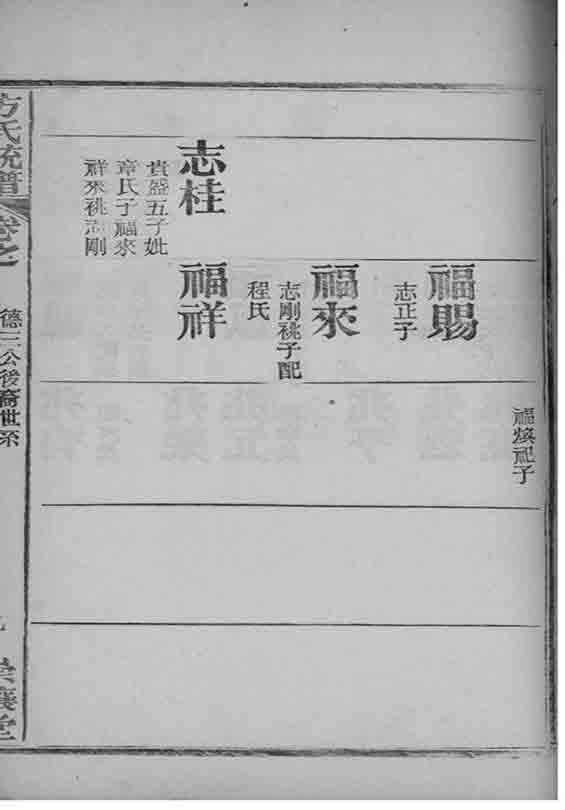 福煥祀子
福賜
志正子
福來
志剛祧子配
程氏
志桂
貴盛五子妣
章氏子福來
祥來祧志剛
福祥
方氏統譜
卷之
德三公後裔世系
崇讓堂